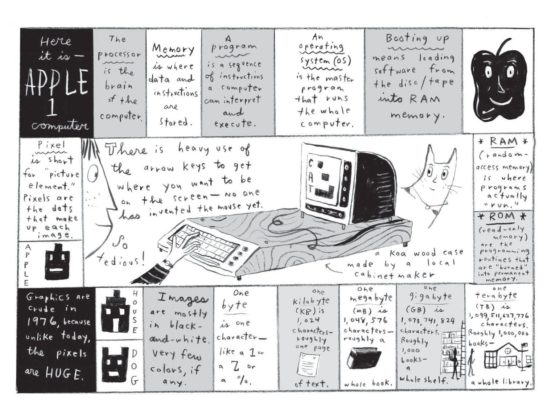 Here
it is—
APPLE
1
computer
The
processor
is the
brain
of the
computer.
Memory
is where
data and
instructions
are
stored.
A
program
is a sequence
of instructions
a computer
can interpret
and
execute.
An
operating
system (OS)
is the master
program
that runs
the whole
computer.
Booting up
means loading
software from
the disc/tape
into RAM
memory.
Pixel
is short
for "picture
element."
Pixels are
the dots
that make
up each
image.
There is heavy use of
the arrow keys to get
where you want to be
on the screen—no one
has invented the mouse yet.
So
tedious!
C
A
T
a koa wood case
made by a local
cabinetmaker
* RAM *
(random-
access memory)
is where
programs
actually
"run."
* ROM *
(read-only
memory)
are the
programming
routines that
are "burned"
into permanent
memory.
APPLE
Graphics are
crude in
1976, because
unlike today,
the pixels
are HUGE.
HOUSE
DOG
Images
are mostly
in black-
and-white.
Very few
colors, if
any.
One
byte
is one
character—
like a 1
a Z or
a %.
One
kilobyte
(KB) is
1,024
characters—
roughly
one page
of text.
One
megabyte
(MB) is
1,048,576
characters—
roughly a
whole book.
One
gigabyte
(GB) is
1,073,741,824
characters.
Roughly
1,000
books—
a
whole shelf.
One
terabyte
(TB) is
1,099,511,627,776
characters.
Roughly 1,000,000
books—
a whole library.